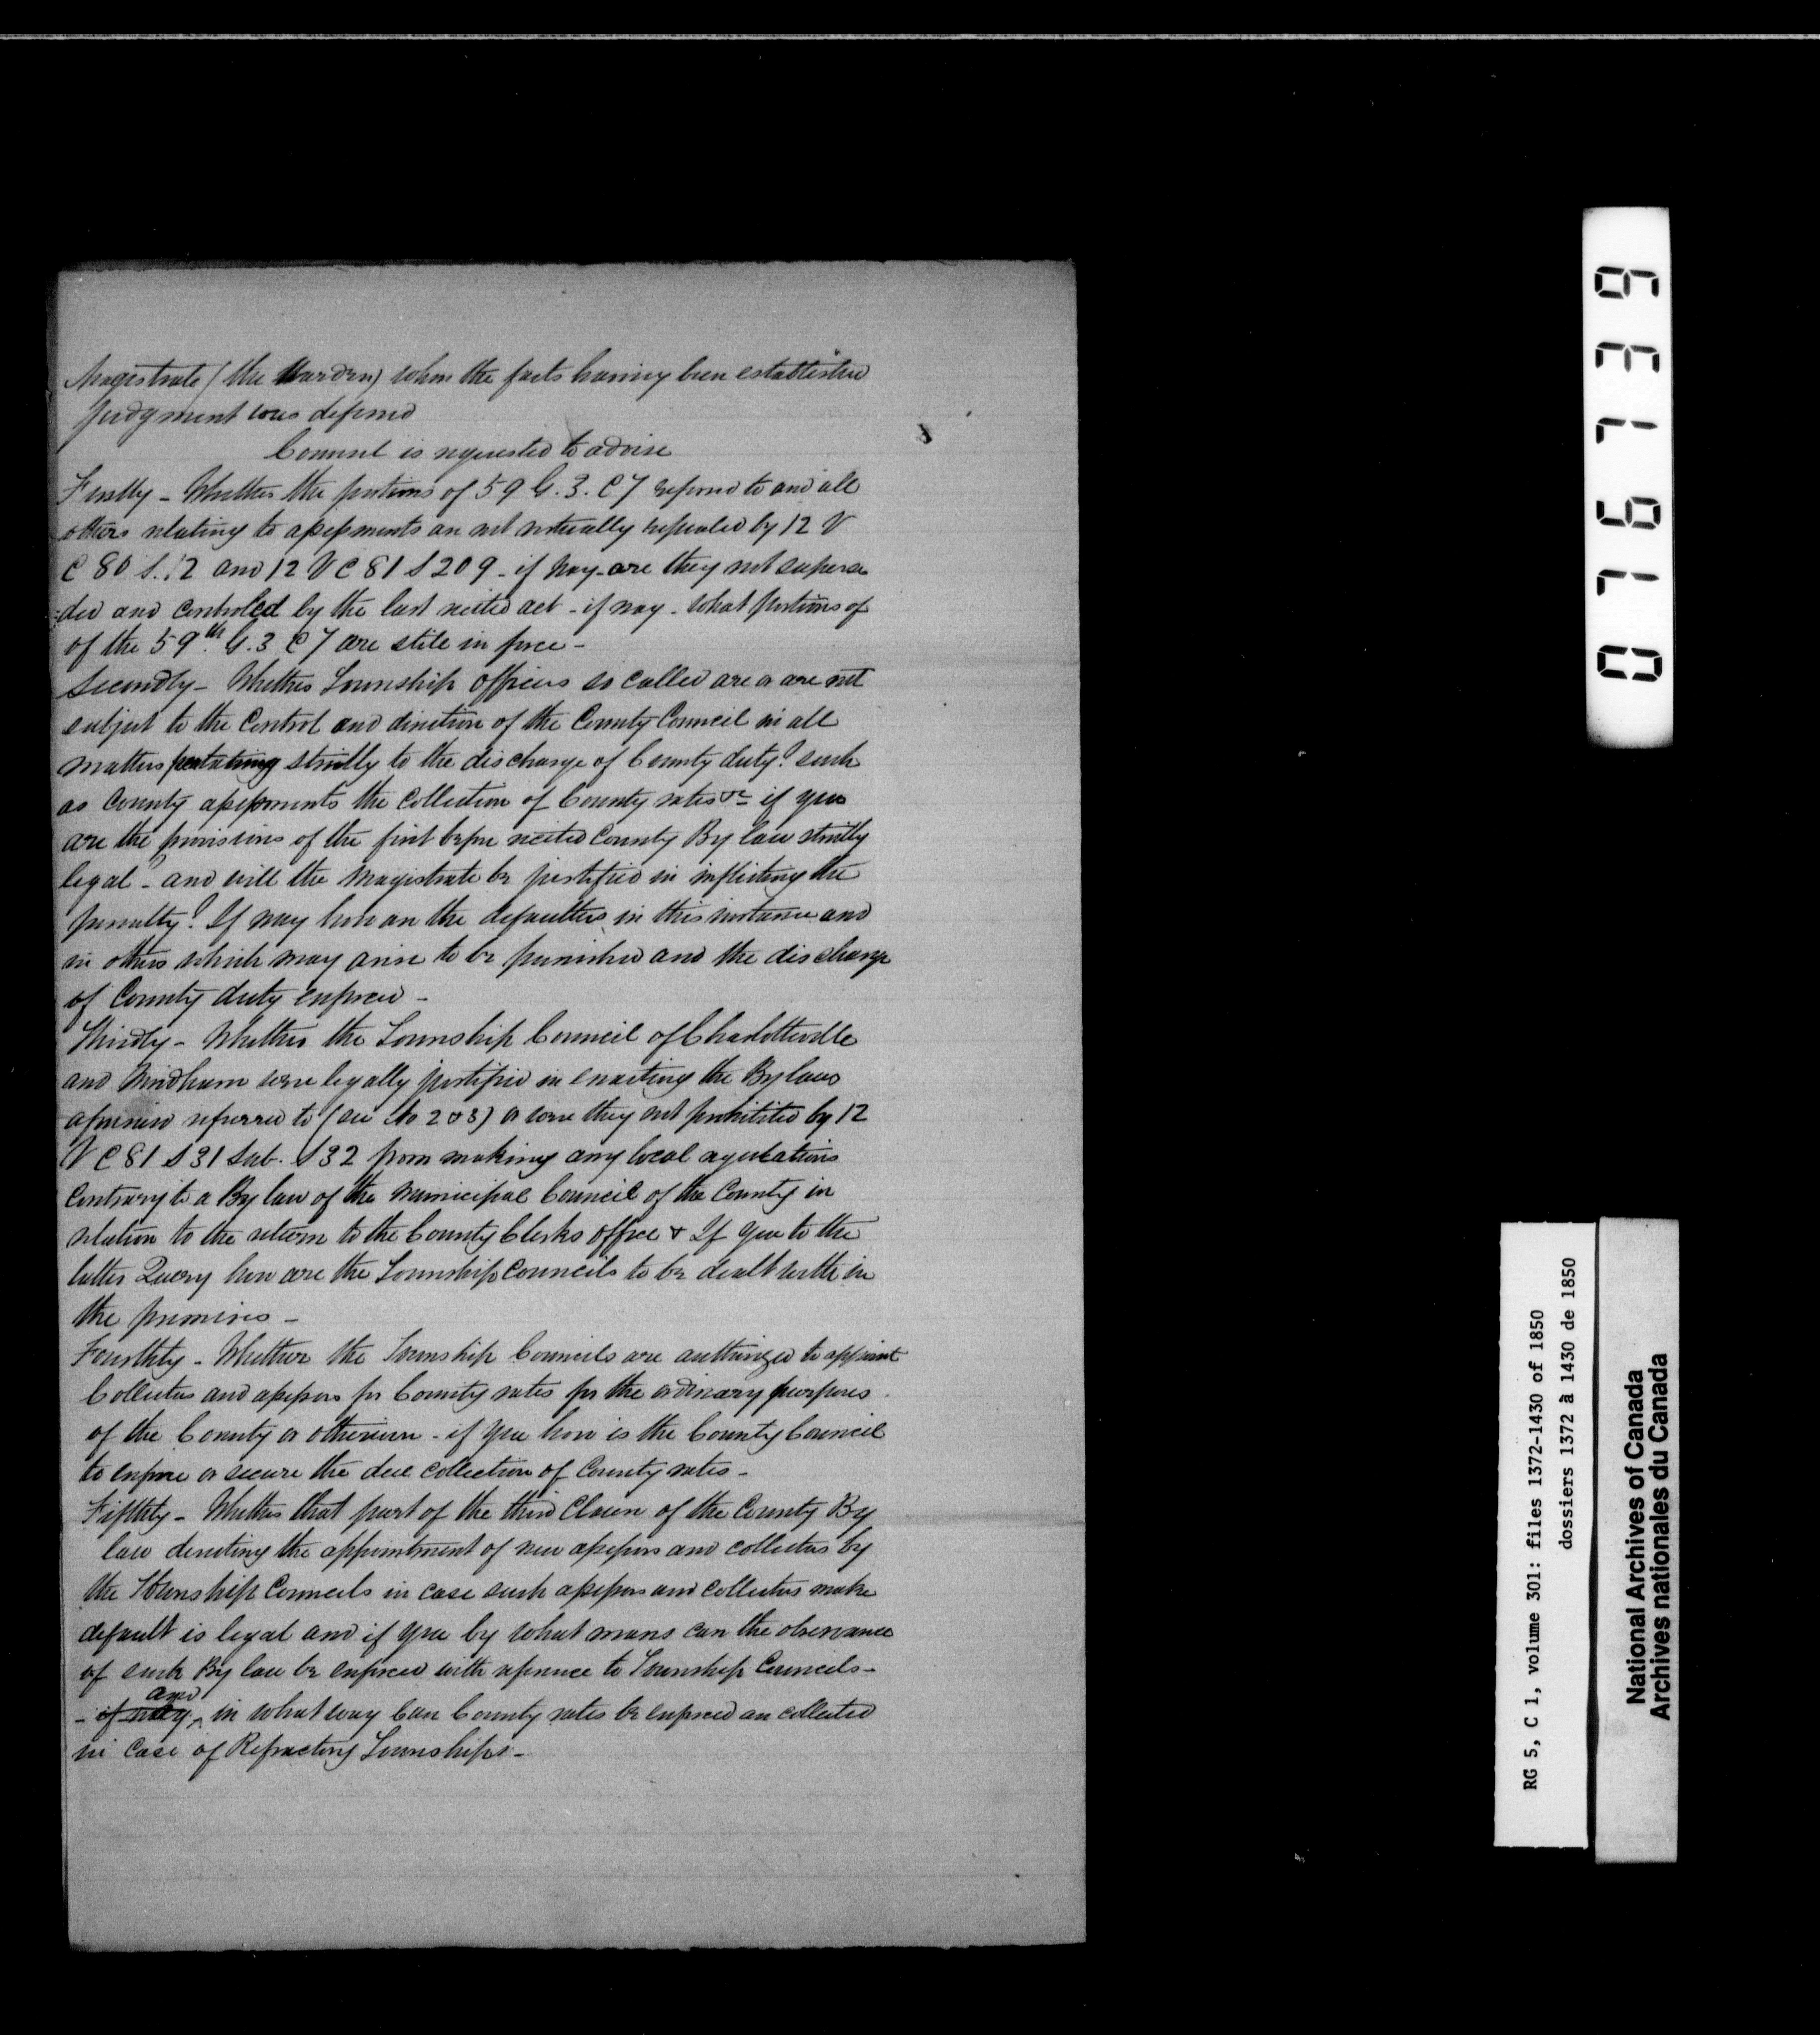 Magistrate (the Warden) when the facts having been established
Judgment was deferred
Counsel is requested to advise
Firstly - Whether the portions of 59 G. 3. C 7 referred to and all
others relating to assessments are not virtually repealed by 12 V
C 80 S. 12 and 12 V C 81 S 209 - if nay - are they not superse
=ded and controled by the last recited act - if nay - what portions of
of the 59th G. 3 C 7 are still in force -
Secondly - Whether Township officers so called are or are not
subject to the Control and direction of the County Council in all
matters pertaining strictly to the discharge of County duty? such
as County assessments the Collection of County rates &c if yea
are the provisions of the first before recited County By law strictly
legal - and will the Magistrate be justified in inflicting the
penalty? If nay how are the defaulters in this instance and
in others which may arise to be punished and the discharge
of County duty enforced -
Thirdly - Whether the Township Council of Charlotteville
and Windham were legally justified in enacting the By laws
aforesaid referred to (see No 2 & 3) or were they not prohibited by 12
V C 81 S 31 Sub. S 32 from making any local regulations
Contrary to a By law of the Municipal Council of the County in
relation to the return to the County Clerks office & If yea to the
latter Query how are the Township Councils to be dealt with in
the premises -
Fourthly - Whether the Township Councils are authorized to appoint
Collectors and assessors for County rates for the ordinary purposes
of the County or otherwise - if yea how is the County Council
to enforce or secure the due collection of County rates -
Fifthly - Whether that part of the third Clause of the County By
law directing the appointment of new assessors and collectors by
the Township Councils in case such assessors and collectors make
default is legal and if yea by what means can the observance
of such By law be enforced with reference to Township Councils -
and
- if nay - in what way can County rates be enforced an collected
in case of Refractory Townships -
076739
RG 5, C 1, volume 301: files 1372-1430 of 1850
dossiers 1372 à 1430 de 1850
National Archives of Canada
Archives nationales du Canada